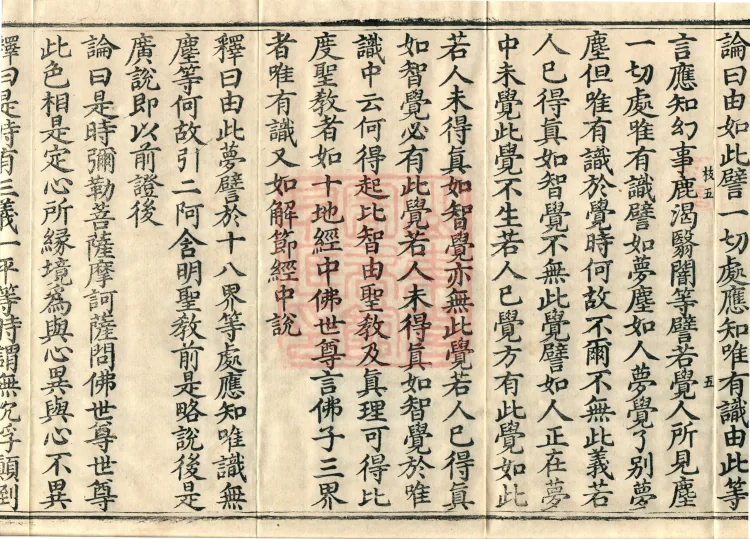 論曰由如此譬一切處應知唯有識由此等
言應知幻事鹿渴翳闇等譬若覺人所見塵
枝五
五
一切處唯有識譬如夢塵如人夢覺了別夢
塵但唯有識於覺時何故不爾不無此義若
人已得真如智覺不無此覺譬如人正在夢
中未覺此覺不生若人已覺方有此覺如此
若人未得真如智覺亦無此覺若人已得真
如智覺必有此覺若人未得真如智覺於唯
識中云何得起比智由聖教及真理可得比
度聖教者如十地經中佛世尊言佛子三界
者唯有識又如解節經中說
釋曰由此夢譬於十八界等處應知唯識無
塵等何故引二阿含明聖教前是略說後是
廣說即以前證後
論曰是時彌勒菩薩摩訶薩問佛世尊世尊
此色相是定心所緣境為與心異與心不異
釋曰是時有三義一平等時謂無沉浮顛倒